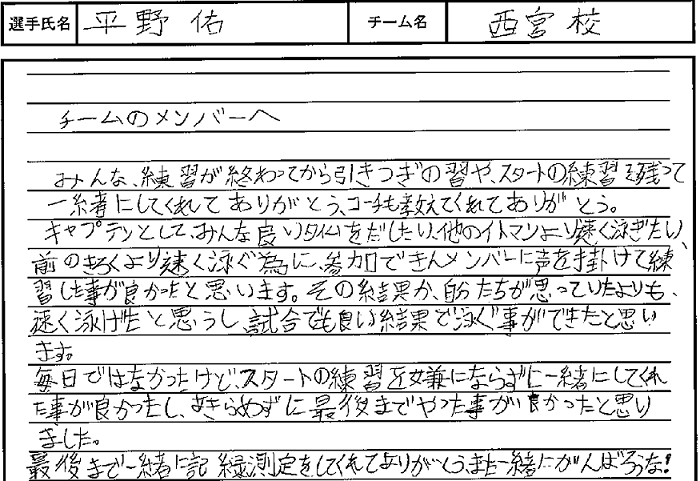 選手氏名 平野 佑 チーム名 西宮校
チームのメンバーへ
みんな、練習が終わってから引きつぎの習や、スタートの練習を残って
一緒にしてくれてありがとう、コーチも教えてくれてありがとう。
キャプテンとして、みんな良いタイムをだしたい、他のイトマンより速く泳ぎたい、
前のきろくより速く泳ぐ為に、参加できんメンバーに声を掛けて練
習した事が良かったと思います。その結果か、自分たちが思っていたよりも、
速く泳げたと思うし、試合でも良い結果で泳ぐ事ができたと思い
ます。
毎日ではなかったけど、スタートの練習を嫌にならずに一緒にしてくれ
た事が良かったし、あきらめずに最後までやった事が良かったと思い
ました。
最後まで一緒に記録測定をしてくれてありがとう、また一緒にがんばろうな!